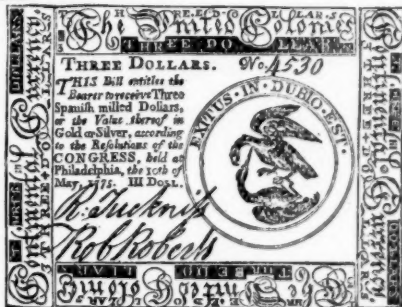 The United Colonies
THREE DOLLARS
THREE DOLLARS. No. 4530
THIS Bill entitles the
Bearer to receive Three
Spanish milled Dollars,
or the Value thereof in
Gold or Silver, according
to the Resolutions of the
CONGRESS, held at
Philadelphia, the 10th of
May, 1775. III DOLL.
EXITUS·IN·DUBIO·EST·
Rob Roberts
Continental Currency
Continental Currency
The United Colonies